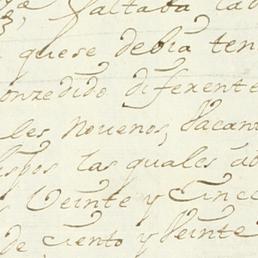 faltaba la
quese debia ten
onzedido diferente
les Novenos, Vacant
ispos las quales
Veinte y Cinco
de ciento y Veinte